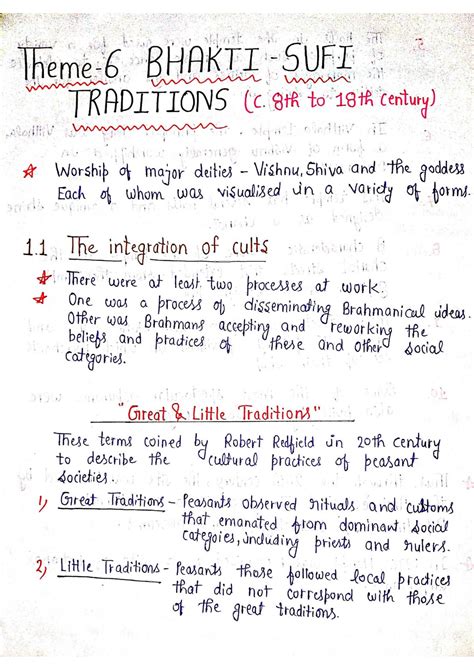 Theme-6 BHAKTI-SUFI
TRADITIONS (C. 8th to 18th Century)
☆ Worship of major deities - Vishnu, Shiva and the goddess
Each of whom was visualised in a variety of forms.
1.1 The integration of cults
☆ There were at least two processes at work.
☆ One was a process of disseminating Brahmanical ideas.
Other was Brahmans accepting and reworking the
beliefs and practices of these and other social
categories.
"Great & Little Traditions"
These terms coined by Robert Redfield in 20th century
to describe the cultural practices of peasant
societies.
1) Great Traditions - Peasants observed rituals and customs
that emanated from dominant social
categoies, including priests and rulers.
2) Little Traditions - Peasants those followed local practices
that did not correspond with those
of the great traditions.